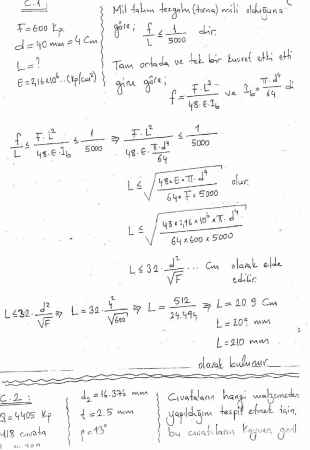 C.1
F=600 Kp.
d=40 mm = 4 Cm
L=?
E=2,16×10⁶..(kp/cm²)
Mil takım tezgahı (torna) mili olduğuna
göre; f/L ≤ 1/5000 dir.
Tam ortada ve tek bir kuvvet etki etti
ğine göre;
f = F.L³/48.E.I_b ve I_b = π.d⁴/64 di
f/L ≤ F.L²/48.E.I_b ≤ 1/5000 ⇒ F.L²/48.E.π.d⁴/64 ≤ 1/5000
L ≤ √(48×E×π.d⁴/64×F×5000) olur.
L ≤ √(48×2,16×10⁶×π.d⁴/64×600×5000)
L ≤ 32 . d²/√F ... Cm olarak elde
edilir.
L ≤ 32 . d²/√F ⇒ L = 32 . 4²/√600 ⇒ L = 512/24.494 ⇒ L = 20 9 Cm
L = 209 mm
L = 210 mm
olarak bulunur
C.2 :
Q=4405 Kp
M18 civata
d₂ = 16.376 mm
t = 2.5 mm
ρ = 13°
Civataların hangi malzemeden
yapıldığını tespit etmek için,
bu civataların kayma geril